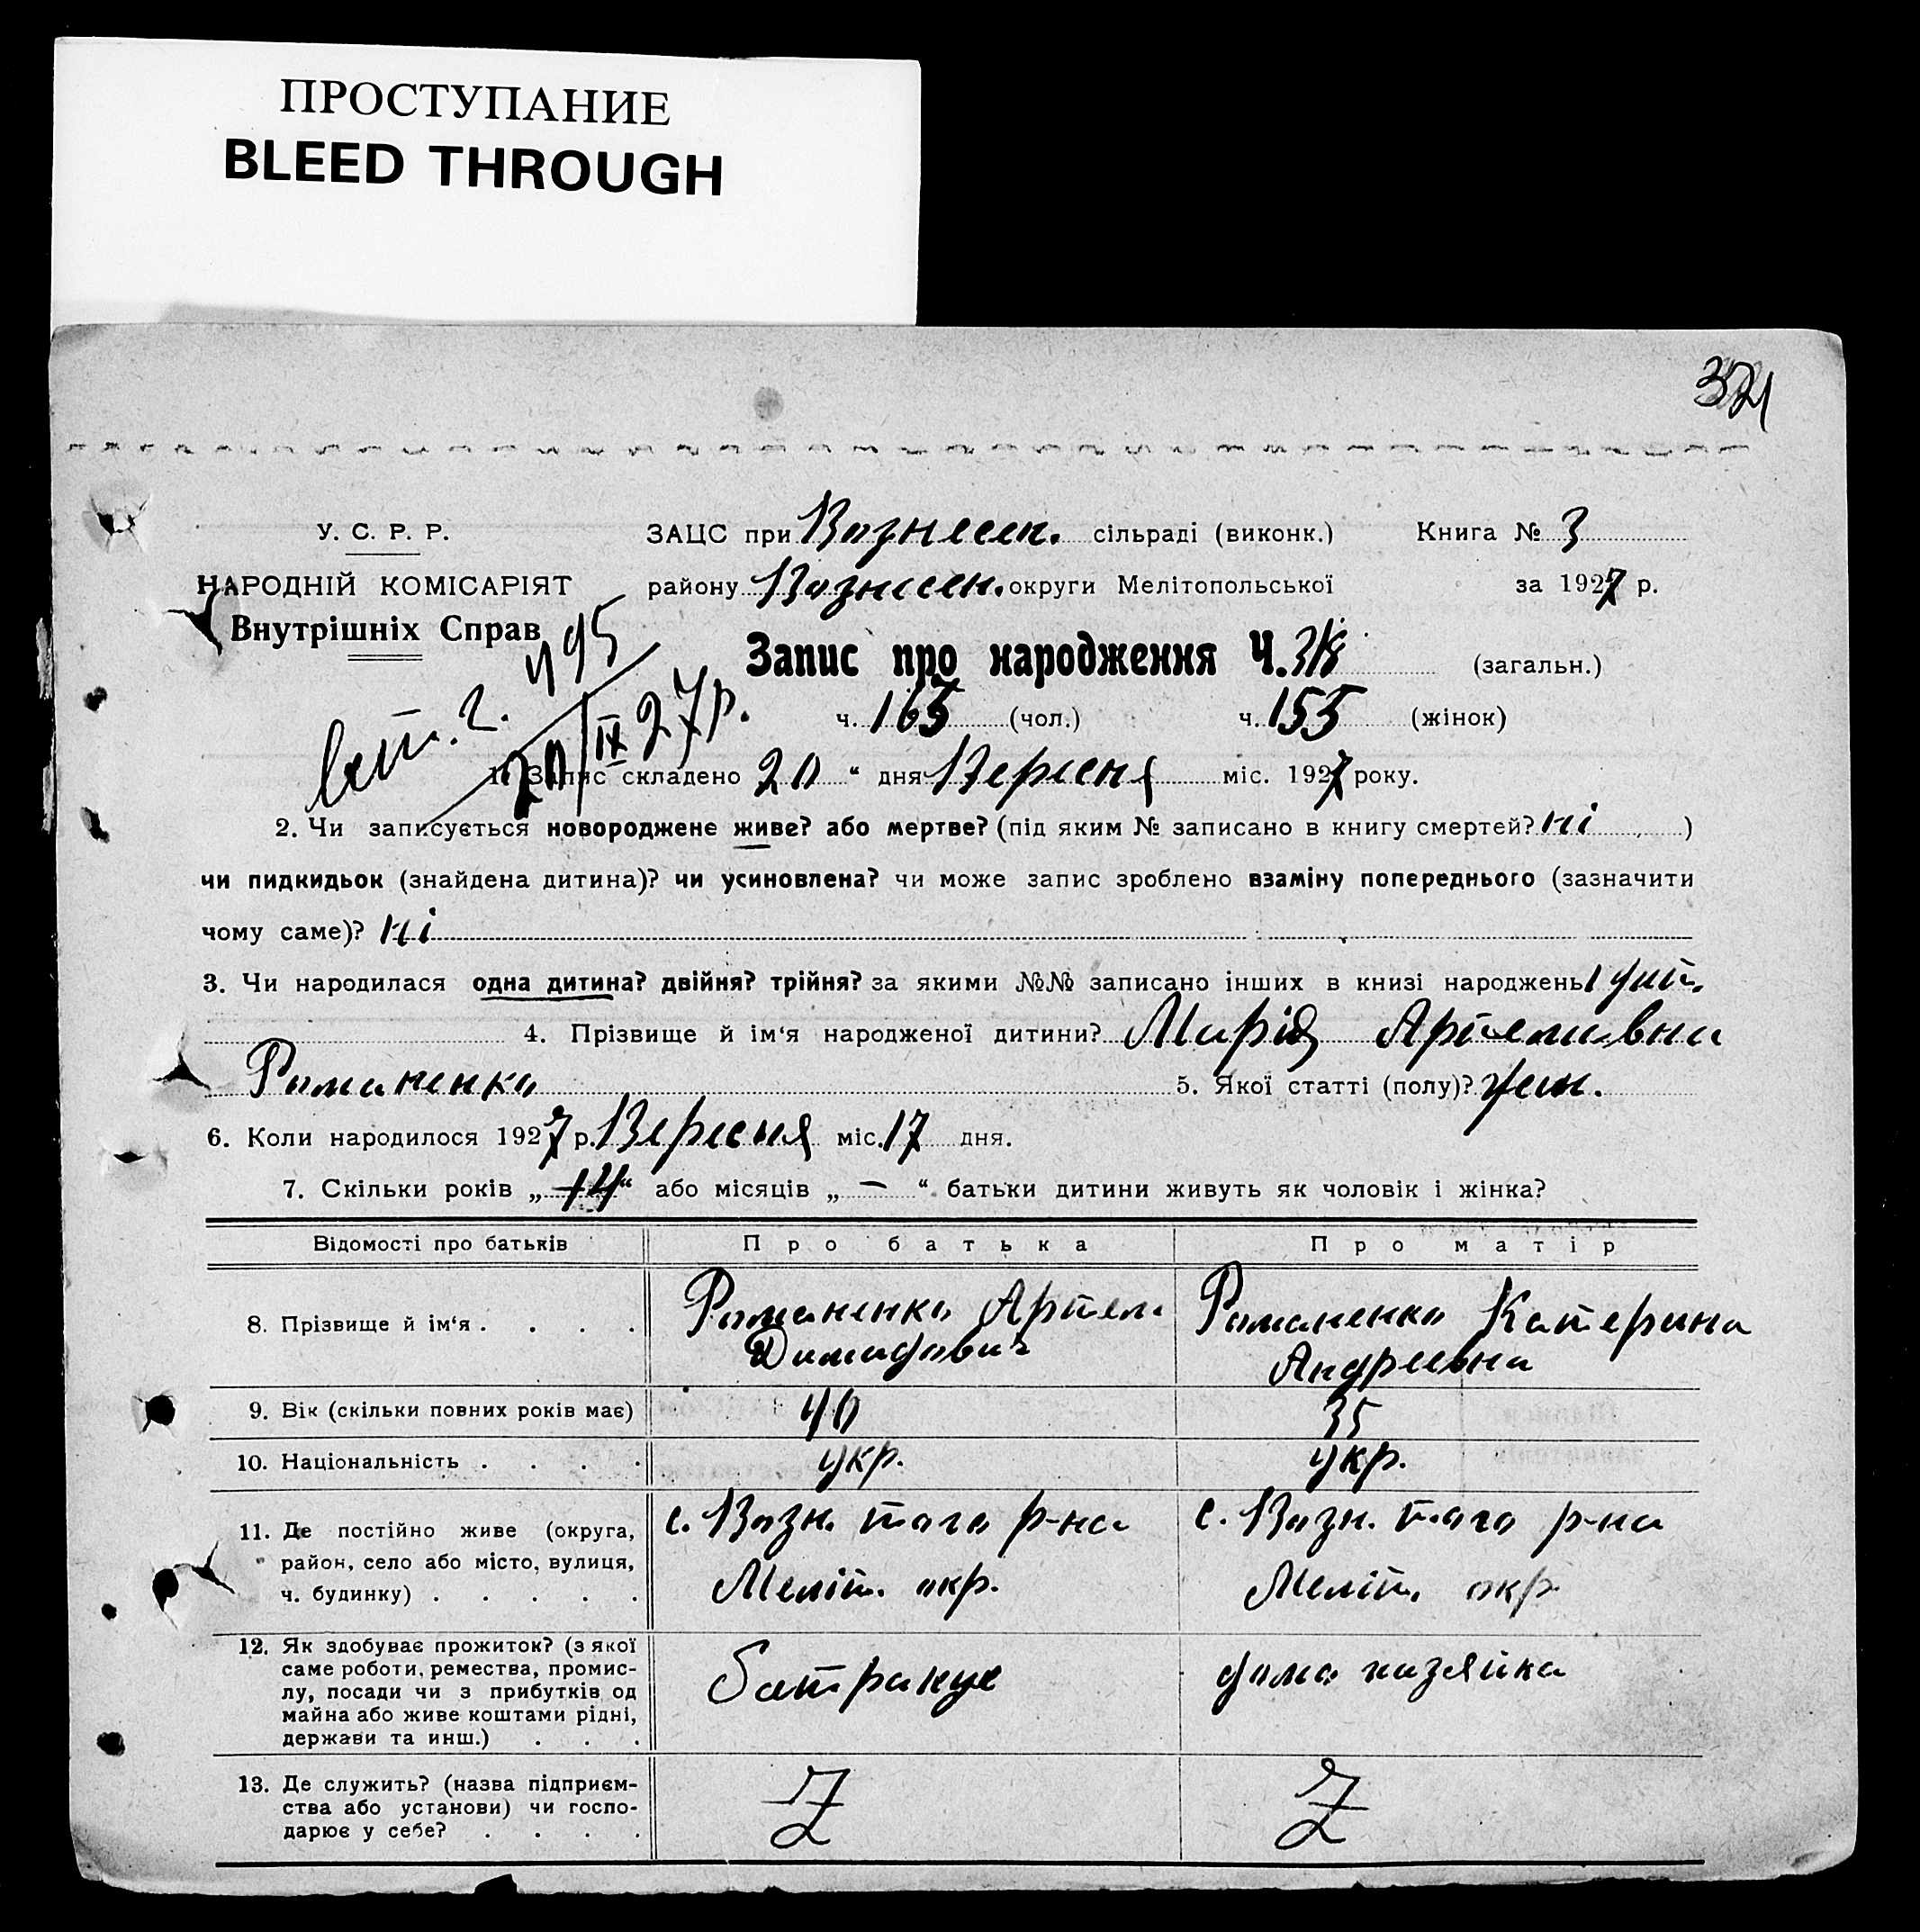 ПРОСТУПАНИЕ
BLEED THROUGH
У. С. Р. Р.
НАРОДНІЙ КОМІСАРІЯТ
Внутрішніх Справ
ЗАЦС при Вознесен. сільраді (виконк.) Книга № 3
району Вознесен. округи Мелітопольської за 1927 р.
Запис про народження Ч. 318 (загальн.)
ч. 163 (чол.) ч. 155 (жінок)
495
20/IX 27р.
1. Запис складено 20 “ дня Вересня міс. 1927 року.
2. Чи записується новороджене живе? або мертве? (під яким № записано в книгу смертей? ні )
чи пидкидьок (знайдена дитина)? чи усиновлена? чи може запис зроблено взаміну попереднього (зазначити
чому саме)? ні
3. Чи народилася одна дитина? двійня? трійня? за якими №№ записано інших в книзі народжень 1 дит.
4. Прізвище й ім‘я народженої дитини? Марія Артемівна
Романенко 5. Якої статті (полу)? жен.
6. Коли народилося 1927 р. Вересня міс. 17 дня.
7. Скільки років „ 14 “ або місяців „ — “ батьки дитини живуть як чоловік і жінка?
Відомості про батьків Про батька Про матір
8. Прізвище й ім‘я . . . . Романенко Артем Романенко Катерина
Андреевна
9. Вік (скільки повних років має) 40 35
10. Національність . . . . укр. укр.
11. Де постійно живе (округа, с. Возн. того р-на с. Возн. того р-на
район, село або місто, вулиця,
ч. будинку) . . . . . Меліт. окр. Меліт. окр
12. Як здобуває прожиток? (з якої
саме роботи, ремества, промис-
лу, посади чи з прибутків од Батракує дома хазяйка
майна або живе коштами рідні,
держави та инш.) . . .
13. Де служить? (назва підприєм-
ства або установи) чи госпо-
дарює у себе? . . . .